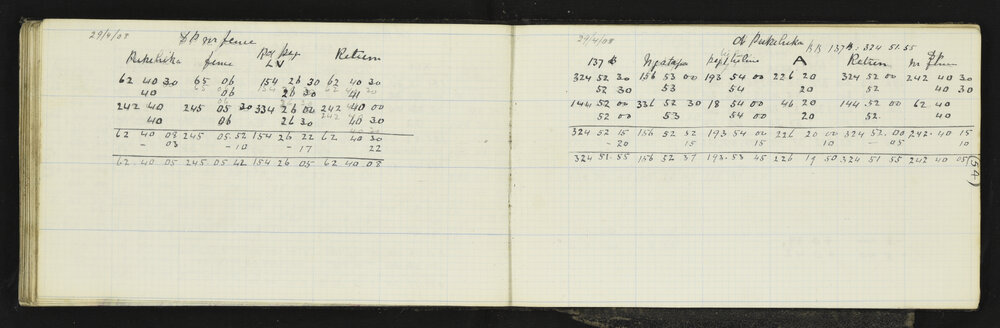 29/4/08
nr fence
Pukehika fence Rd Peg Return
LV
62 40 30 65 06 154 26 30 62 40 30
40 06 26 30 41
242 40 245 05 30 334 26 00 242 40 00
40 06 26 30 40 30
62 40 08 245 05 52 154 26 22 62 40 30
- 03 - 10 - 17 22
62 40 05 245 05 42 154 26 05 62 40 08
29/4/08
@ Pukehika 137 : 324 51 55
137 Ngatapa A Return nr
324 52 30 156 53 00 193 54 00 226 20 324 52 00 242 40 30
52 30 53 54 20 52 40 30
144 52 00 336 52 30 18 54 00 46 20 144 52 00 62 40
52 00 53 54 00 20 52 40
324 52 15 156 52 52 193 54 00 226 20 00 324 52 00 242 40 15
- 20 15 15 10 - 05 10
324 51 55 156 52 37 193 53 45 226 19 50 324 51 55 242 40 05
(54)